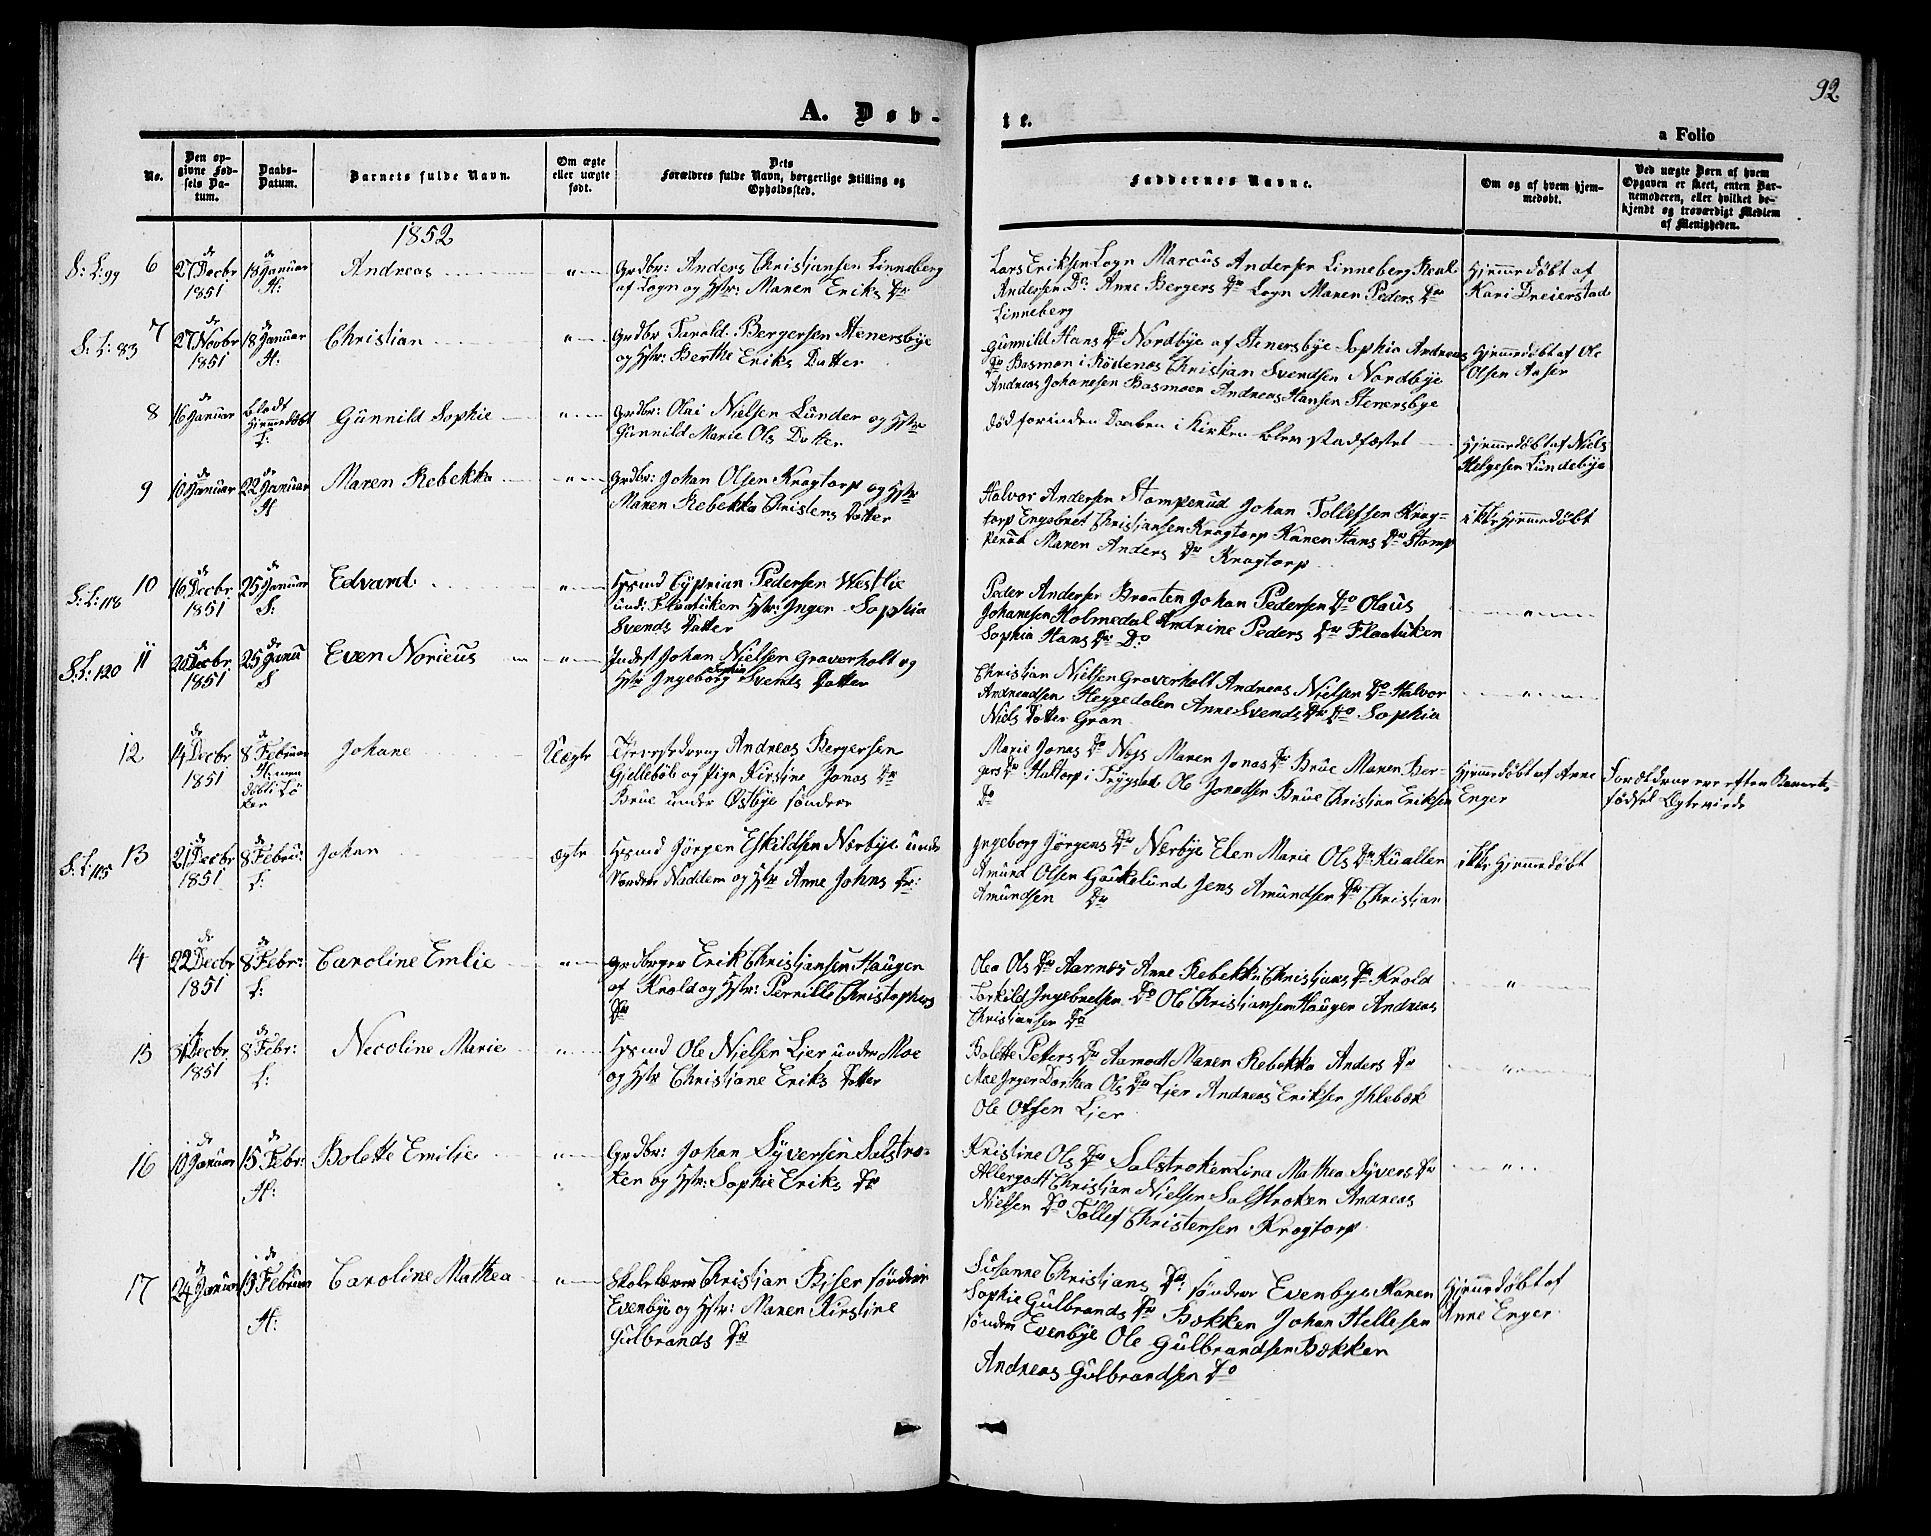 92
A. Døb-
te.
a Folio
No.
Den op-
givne Fød-
sels Da-
tum.
Daabs-
Datum.
Barnets fulde Navn.
Om ægte
eller uægte
født.
Dets
Forældres fulde Navn, borgerlige Stilling og
Opholdssted.
Faddernes Navne.
Om og af hvem hjem-
medøbt.
Ved uægte Børn af hvem
Opgaven er skeet, enten Bar-
nemoderen, eller hvilket be-
kjendt og troværdigt Medlem
af Menigheden.
1852
S: L: 99
6
27 Decbr
1851
18 Januar
H:
Andreas
"
Grdbr: Anders Christjansen Linneberg
af Logn og Hstr: Maren Eriks Dr
Lars Eriksen Logn Marcus Andersen Linneberg
Andersen Do: Anne Bergers Dr Logn Maren Peders Dr
Linneberg
Hjemmedøbt af
Kari Dreierstad
S: L: 83
7
27 Novbr
1851
18 Januar
H:
Christian
"
Grdbr Tarald Bergersen Stenersbye
og Hstr: Berthe Eriks Datter
Gunnild Hans Dr Nordbye af Stenersbye Sophia Andreas
Dr Basmon i Rødenes Christjan Svendsen Nordbye
Andreas Johanesen Basmoen Andreas Hansen Stenersbye
Hjemmedøbt af Ole
Olsen Aaser
8
16 Januar
Blodt
Hjemmedøbt
Gunnild Sophie
"
Grdbr: Olai Nielsen Lunder og Hstr
Gunnild Marie Ols Datter
død forinden Daaben i Kirken blev stadfæstet
Hjemmedøbt af Niels
Helgesen Lundebye
9
10 Januar
22 Januar
H
Maren Rebekka
"
Grdbr: Johan Olsen Kragtorp og Hstr
Maren Rebekka Christens Datter
Halvor Andersen Stomperud Johan Tollefsen Krag-
torp Engebret Christjansen Kragtorp Karen Hans Dr Stomp
perud Maren Anders Dr Kragtorp
ikke hjemmedøbt
S: L: 118
10
16 Decbr
1851
25 Januar
S:
Edvard
"
Hsmd Cyprian Pedersen Westlie
und: Flaatuken Hstr: Inger Sophia
Svends Datter
Peder Andersen Braaten Johan Pedersen Do Olaus
Johanesen Holmedal Andrine Peders Dr Flaatuken
Sophia Hans Dr Do
"
S: L: 120
11
20 Decbr
1851
25 Janu
S
Even Noricus
"
Inderst Johan Nielsen Graverholt og
Hstr Ingeborg Sophia Svends Datter
Christian Nielsen Graverholt Andreas Nielsen Do Halvor
Andreasen Heggedalen Anne Svends Dr Do Sophia
Niels Datter Gran
"
12
14 Decbr
1851
8 Februar
Johane
Uægte
Andreas Bergersen
Gjellebøl og Pige Kirstine Jonas Dr
Brue under Østbye søndere
Marie Jonas Dr Næs Maren Jonas Dr Brue Maren Ber-
gers Dr Hattorp i Trygstad Ole Jonassen Brue Christian Eriksen
Do
Hjemmedøbt af Anne
Enger
Forældrene ere efter Barnets
fødsel Ægteviede
S: L: 115
13
21 Decbr
1851
8 Febru:
L:
Johan
ægte
Hsmd Jørgen Eskildsen Nærbye under
Nordre Naddem og Hstr Anne Johns Dr:
Ingeborg Jørgens Dr Nærbye Elen Marie Ols Dr Kuallen
Amund Olsen Gaukelund Jens Amundsen Do Christian
Amundsen Do
ikke hjemmedøbt
14
22 Decbr
1851
8 Febr:
L:
Caroline Emlie
"
Grdbrger Erik Christjansen Haugen
af Krold og Hstr: Pernille Christophers
Dr
Olea Ols Dr Aarnes Anne Rebekka Christjans Dr Krold
Torkild Ingebretsen Do Ole Christjansen Haugen Andreas
Christjansen Do
"
15
31 Decbr
1851
8 Febr:
L:
Necoline Marie
"
Hsmd Ole Nielsen Lier under Moe
og Hstr Christiane Eriks Datter
Bolette Petters Dr Aamodt Maren Rebekka Anders Dr
Moe Inger Dorthea Ols Dr Lier Andreas Eriksen Ihlebæk
Ole Olsen Lier
"
16
10 Januar
15 Febr:
H:
Bolette Emilie
"
Grdbr: Johan Syversen Salstro-
ken og Hstr: Sophie Eriks Dr
Kristine Ols Dr Salstroken Lina Mathea Syvers Dr
Allergodt Christjan Nielsen Salstroken Andreas
Nielsen Do Tollef Christensen Kragtorp
"
17
24 Januar
15 Februar
H:
Caroline Mathea
"
Skolelærer Christian Riser søndre
Evenbye og Hstr: Maren Kirstine
Gulbrands Dr
Susanne Christjans Dr: søndre Evenbye Maren
Sophie Gulbrands Dr Bækken Johan Hellesen
søndre Evenbye Ole Gulbrandsen Bækken
Andreas Gulbrandsen Do
Hjemmedøbt af
Anne Enger